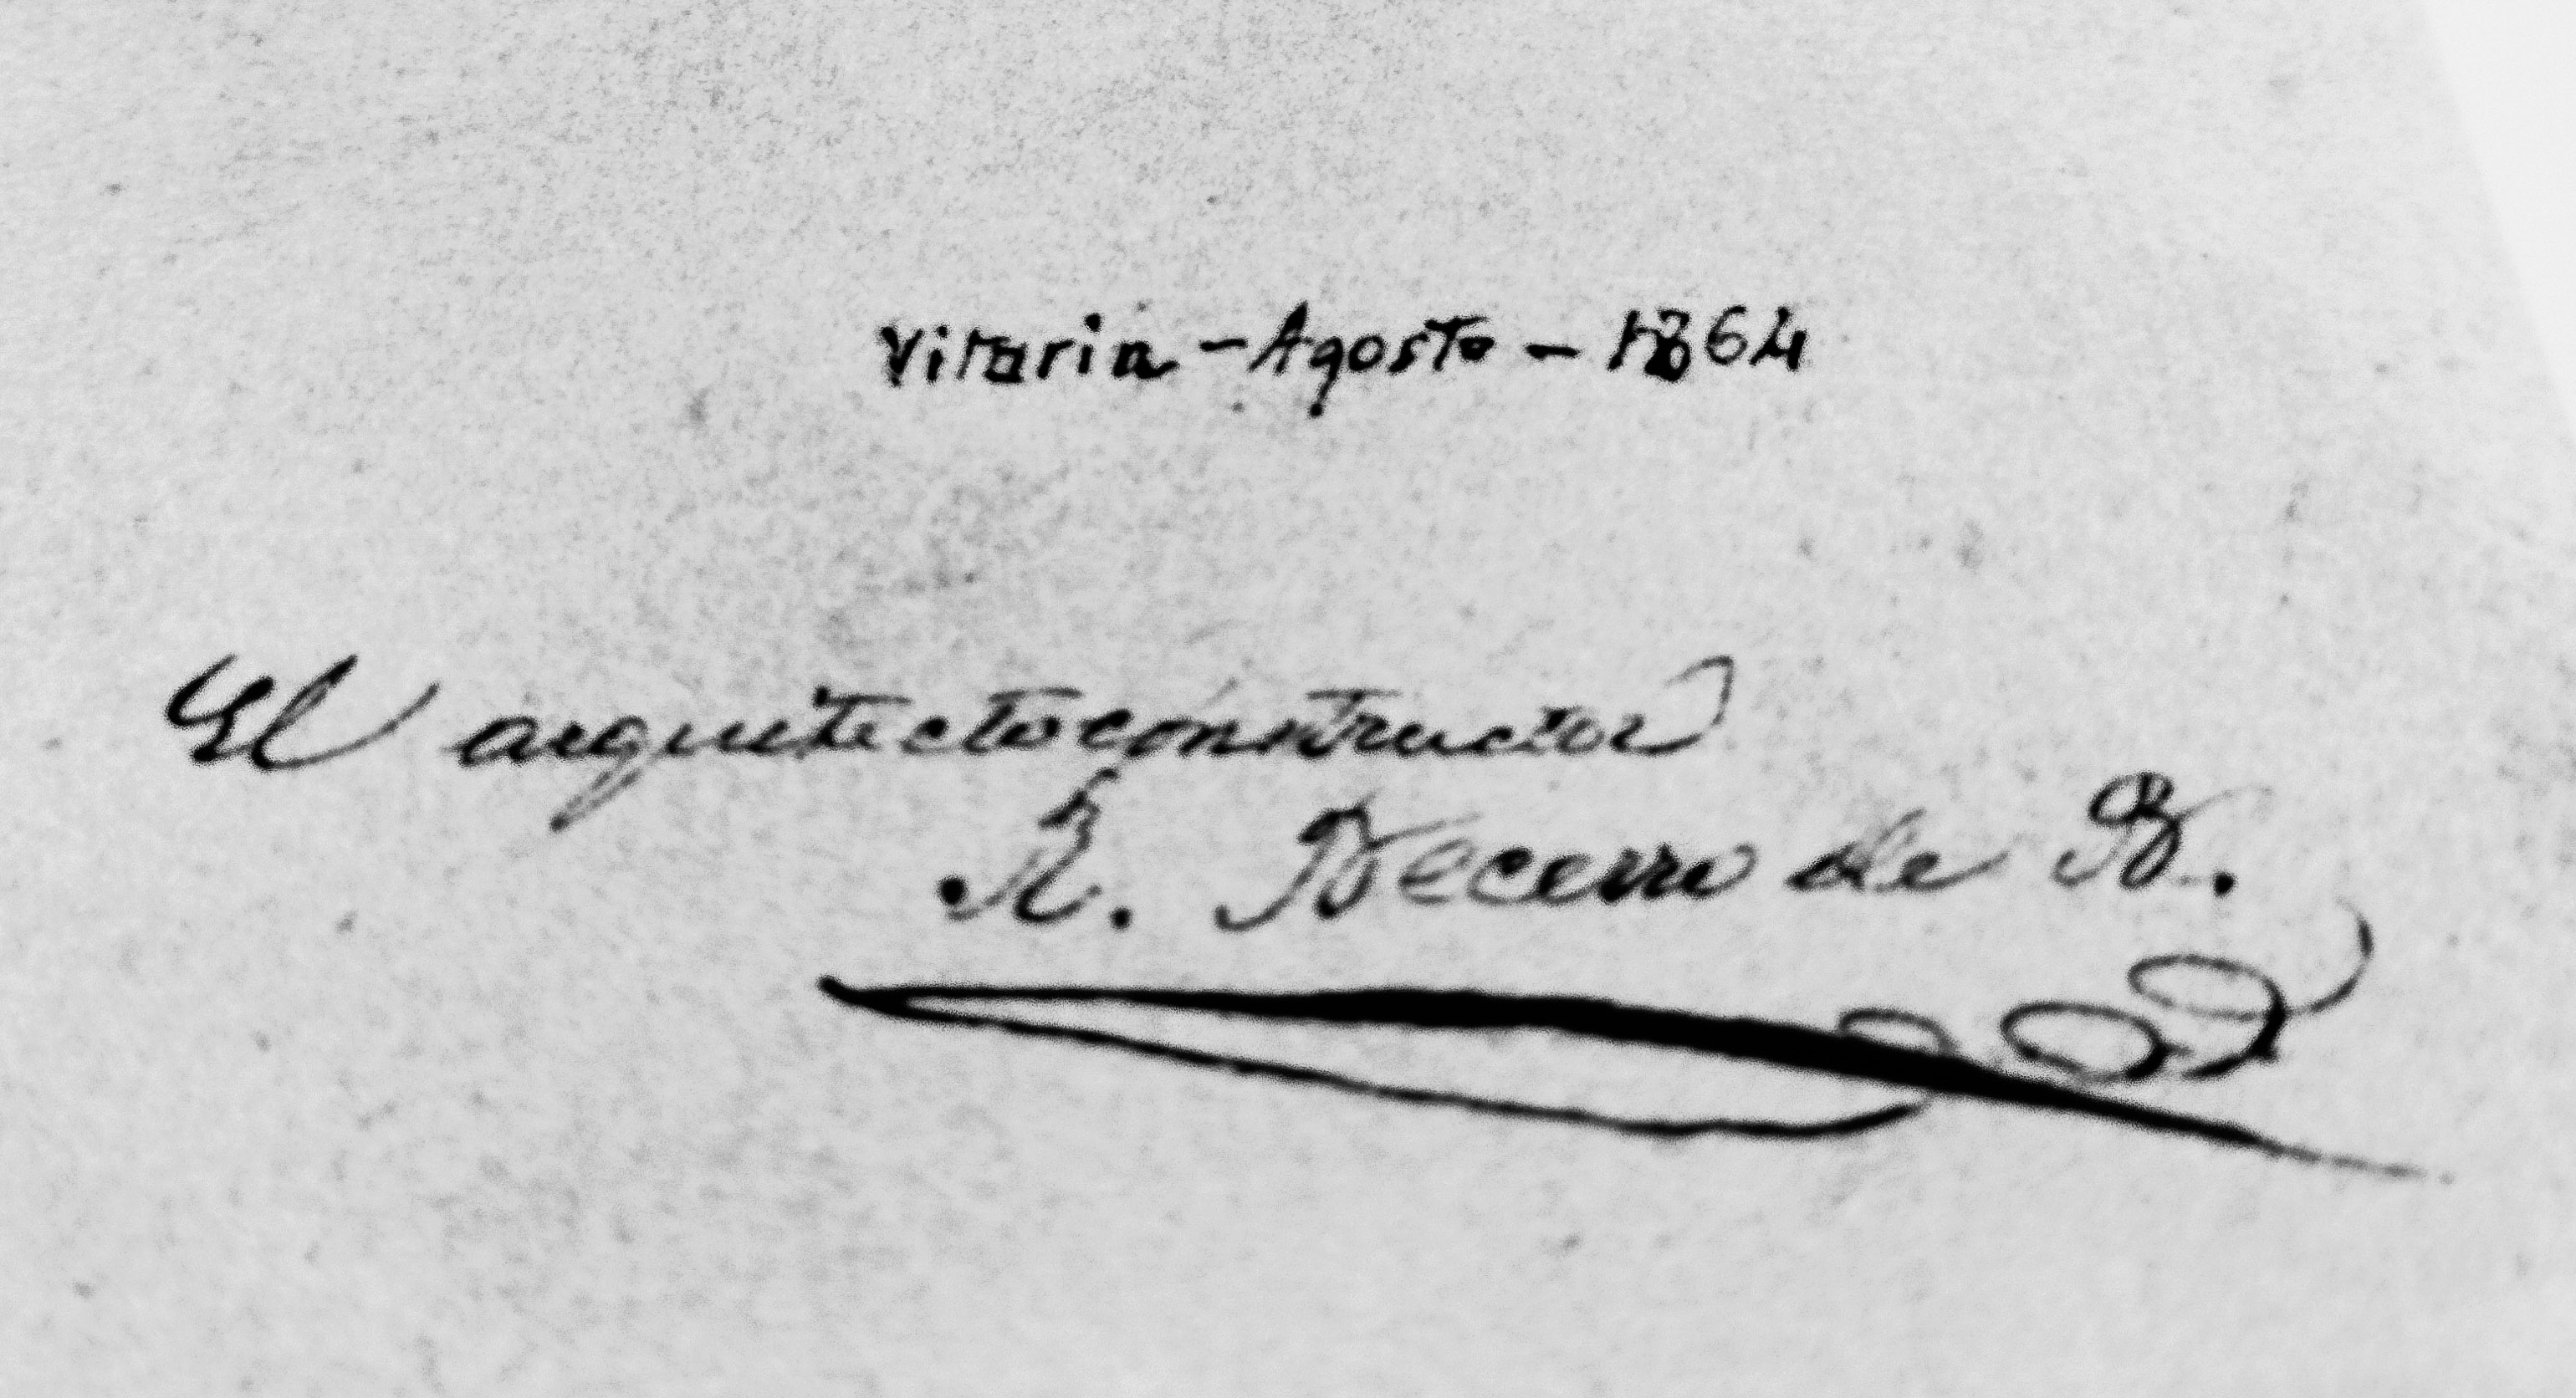 Vitoria - Agosto - 1864
El arquitecto constructor
R. Becerro de B.